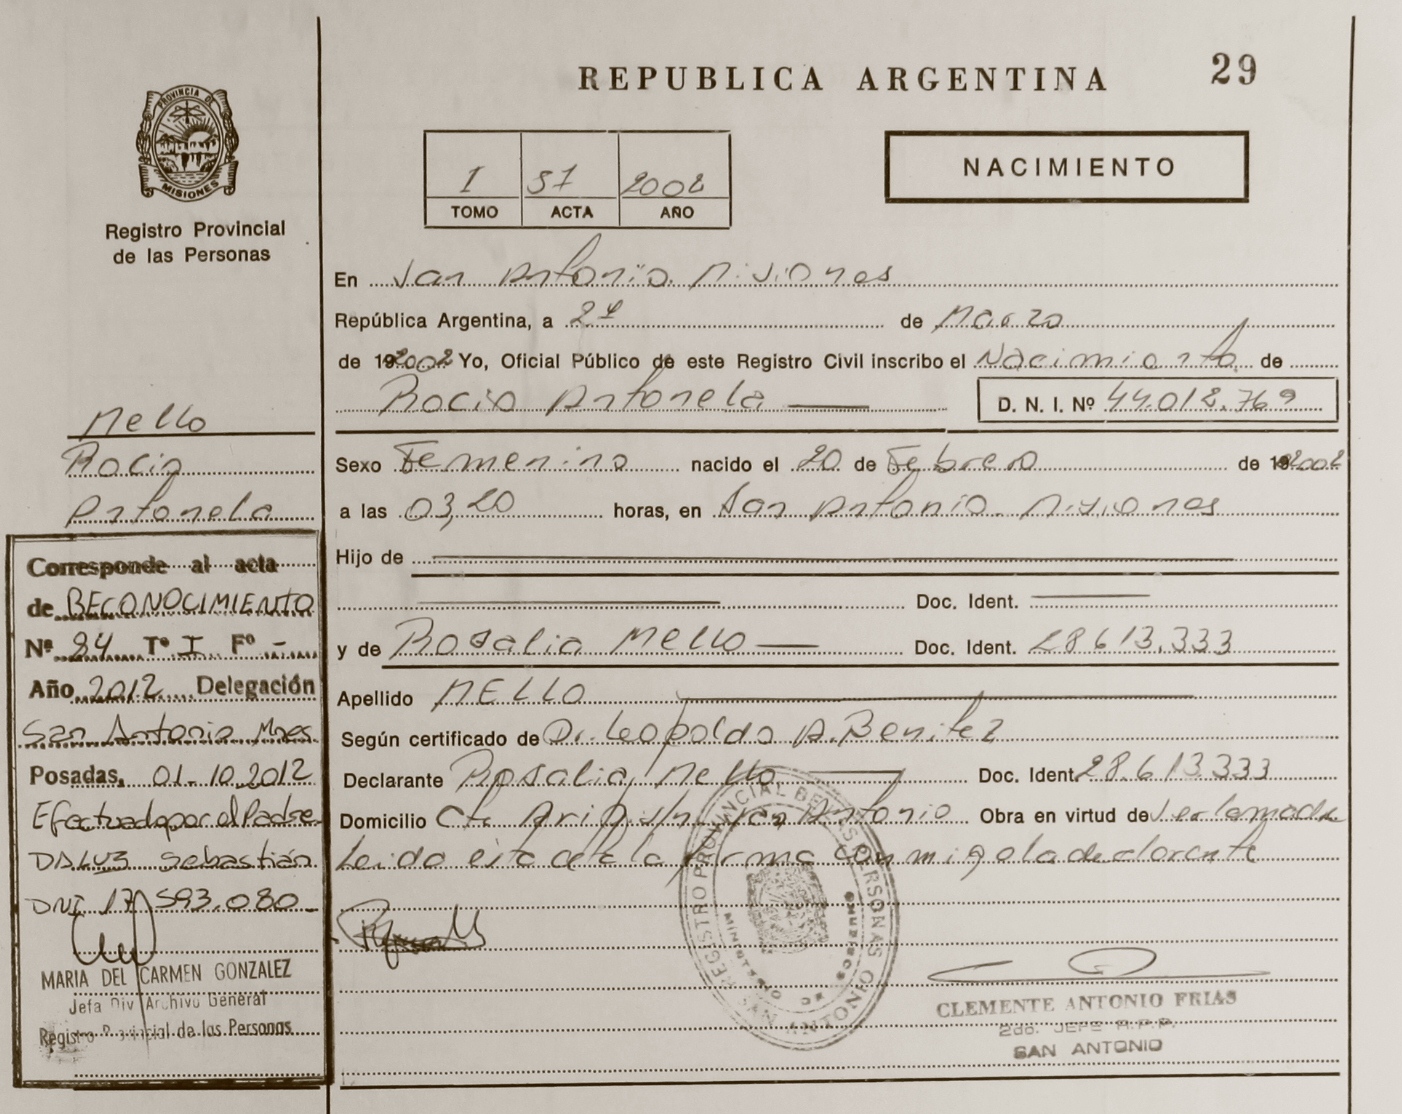 REPUBLICA ARGENTINA 29
PROVINCIA DE
MISIONES
Registro Provincial
de las Personas
I 37 2002
TOMO ACTA AÑO
NACIMIENTO
En San Antonio Misiones
República Argentina, a 21 de Marzo
de 192002 Yo, Oficial Público de este Registro Civil inscribo el Nacimiento de
Rocio Antonela D. N. I. Nº 44.012.769
Sexo Femenino nacido el 20 de Febrero de 192002
a las 03,20 horas, en San Antonio Misiones
Hijo de
Doc. Ident.
y de Rosalia Mello Doc. Ident. 28 613.333
Apellido MELLO
Según certificado de Dr. Leopoldo A. Benitez
Declarante Rosalia Mello Doc. Ident. 28.613.333
Domicilio Cte Arig. s/n San Antonio Obra en virtud de ser la madre
Leido esta acta la firma conmigo la declarante
Mello
Rocio
Antonela
Corresponde al acta
de RECONOCIMIENTO
Nº 84 Tº I Fº -
Año 2012 Delegación
San Antonio Mnes.
Posadas, 01-10-2012
Efectuado por el Padre
DALUZ Sebastián
DNI 17.593.080
MARIA DEL CARMEN GONZALEZ
Jefa Div Archivo General
Registro Provincial de las Personas
REGISTRO PROVINCIAL DE LAS PERSONAS
MINISTERIO DE
SAN ANTONIO
CLEMENTE ANTONIO FRIAS
2do. JEFE R.P.P.
SAN ANTONIO